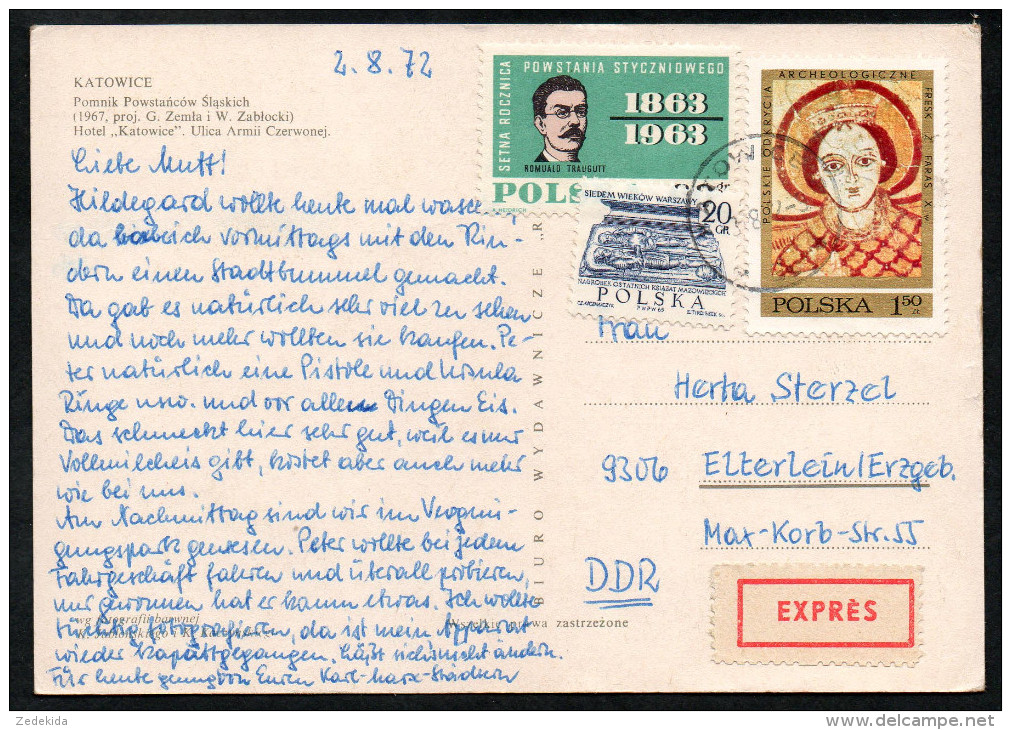 KATOWICE
Pomnik Powstańców Śląskich
(1967, proj. G. Zemła i W. Zabłocki)
Hotel „Katowice”. Ulica Armii Czerwonej.
2.8.72
Liebe Mutti!
Hildegard wollte heute mal waschen,
da ich vormittags mit den Kin-
dern einen Stadtbummel gemacht.
Da gab es natürlich sehr viel zu sehen
und noch mehr wollten sie kaufen. Pe-
ter natürlich eine Pistole und Ursula
Ringe usw. und vor allen Dingen Eis.
Das schmeckt hier sehr gut, weil es nur
Vollmilcheis gibt, kostet aber auch mehr
wie bei uns.
Am Nachmittag sind wir im Vergnü-
gungspark gewesen. Peter wollte bei jedem
Fahrgeschäft fahren und überall probieren,
nur gewonnen hat er kaum etwas. Ich wollte
tüchtig fotografieren, da ist mein Apparat
wieder kaputtgegangen. Läßt sich nicht ändern.
Für heute genug von Euren Karl-Marx-Städtern
wg fotografii barwnej
Wszelkie prawa zastrzeżone
BIURO WYDAWNICZE „R
SETNA ROCZNICA
POWSTANIA STYCZNIOWEGO
1863
1963
ROMUALD TRAUGUTT
POLS
A. HEIDRICH
SIEDEM WIEKÓW WARSZAWY
20
GR
NAGROBEK OSTATNICH KSIĄŻĄT MAZOWIECKICH
POLSKA
PWPW 65
POLSKIE ODKRYCIA
ARCHEOLOGICZNE
FRESK Z FARAS X W
POLSKA 1.50
ZŁ
Frau
Herta Sterzel
9306 Elterlein/Erzgeb.
Max-Korb-Str. 55
DDR
EXPRÈS
Zedekida
www.delcampe.net